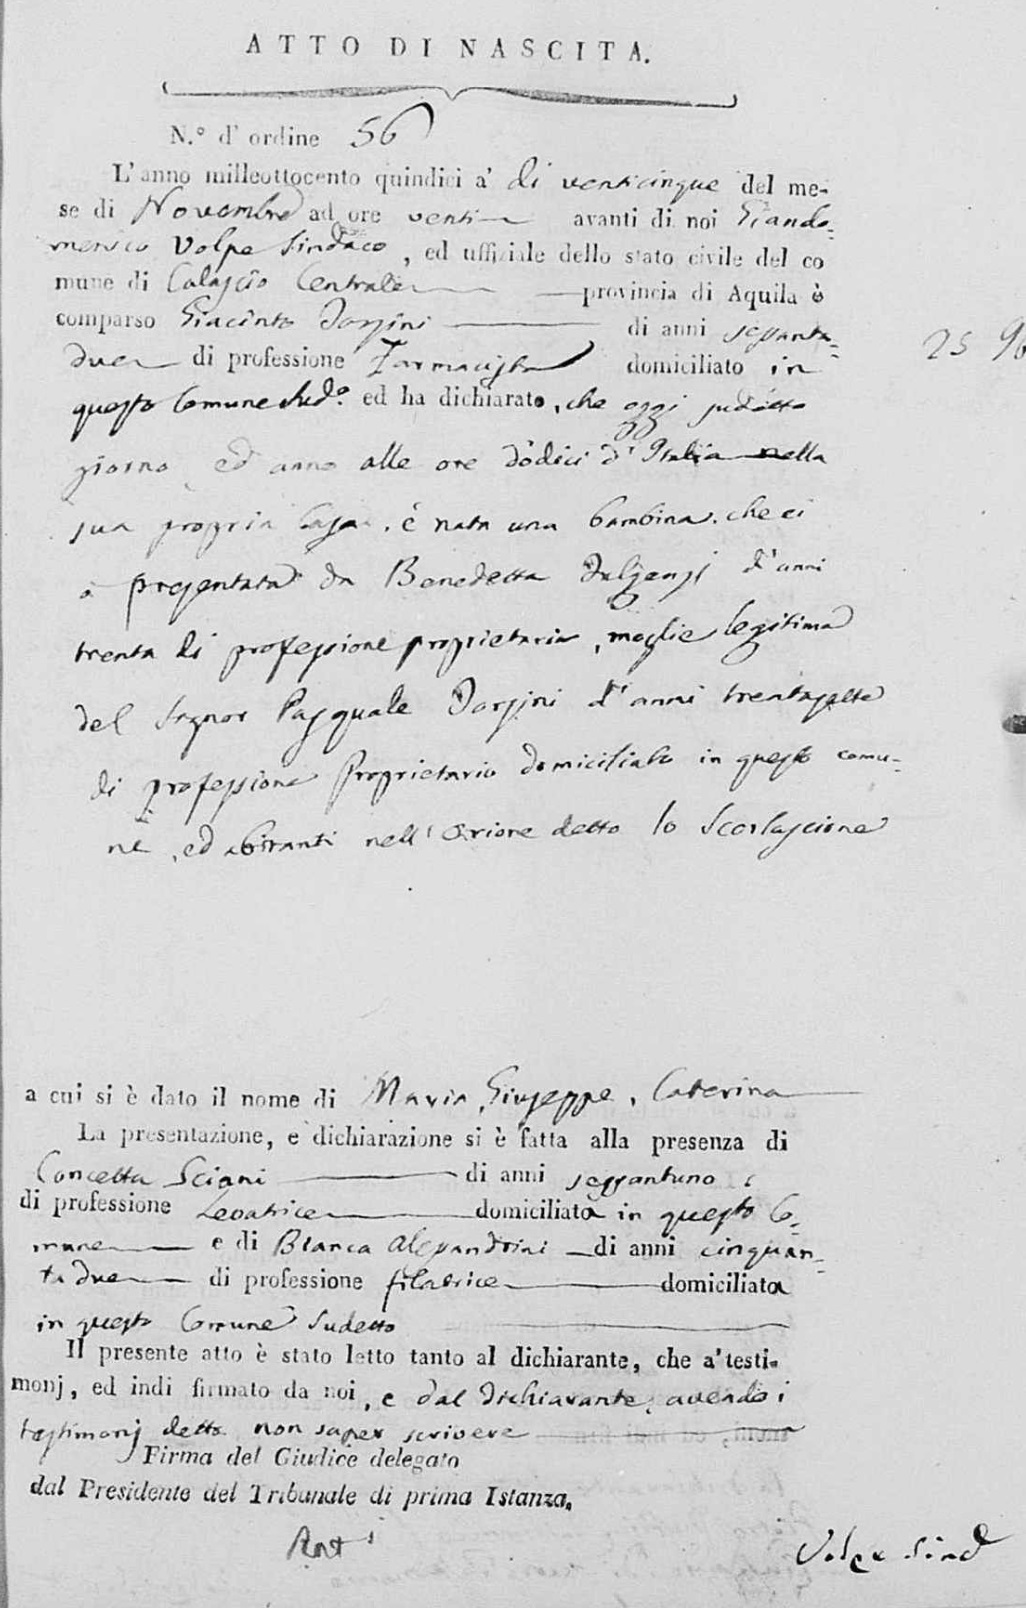 ATTO DI NASCITA.
N.° d' ordine 56
L'anno milleottocento quindici a' di venticinque del me-
se di Novembre ad ore venti avanti di noi Giando=
menico Volpe Sindaco, ed uffiziale dello stato civile del co
mune di Calascio Centrale provincia di Aquila è
comparso Giacinto di anni sessanta=
due di professione Farmacista domiciliato in
questo Comune Sud.° ed ha dichiarato, che oggi sudetto
giorno ed anno alle ore dodici d'Italia nella
sua propria Casa. è nata una bambina. che ci
à presentata da Benedetta d'anni
trenta di professione proprietaria, moglie legitima
del Signor Pasquale d'anni trentasette
di professione Proprietario domiciliato in questo comu-
ne, ed abitanti nell' detto lo
a cui si è dato il nome di Maria, Giuseppe, Caterina
La presentazione, e dichiarazione si è fatta alla presenza di
Concetta Sciani di anni sessantuno
di professione Levatrice domiciliata in questo Co=
mune e di Bianca Alesandrini di anni cinquan=
ta due di professione filatrice domiciliata
in questo Comune Sudetto
Il presente atto è stato letto tanto al dichiarante, che a' testi-
monj, ed indi firmato da noi, e dal dichiarante, avendo i
testimonj detto non saper scrivere
Firma del Giudice delegato
dal Presidente del Tribunale di prima Istanza.
Volpe Sind